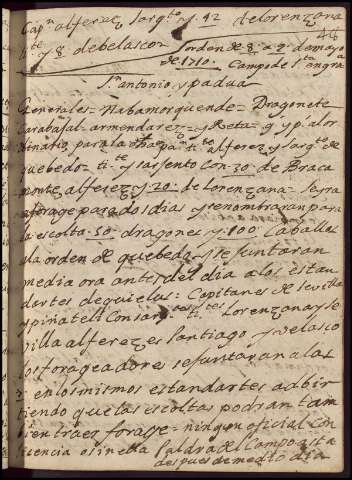 Capn alferez sargto y 42 de lorenzana
48
te y 8 de belasco = orden de 8 a 9 de mayo
de 1710. Campo de sta engra
Sn antonio y padua
Generales = Nabamorquende = Dragonete
Carabajal armendarez = y Reta
dinario para la te alferez y sargto de
quebedo = te y sarjento Con 30 de Braca
monte alferez y 20 de lorenzana = sera
a forage para dos dias y renombraran para
la escolta 50 dragones y 100 Caballos
a la orden de quebedo y se juntaran
media ora antes del dia a los estan
dartes de quielus = Capitanes de sevilla
y piñateli Con tes lorenzana y se
villa alferezes santiago y velasco
los forageadores se juntaran a las
3 en los mismos estandartes adbir
tiendo que las escoltas podran tam
bien traer forage = ningun oficial con
licencia o sin ella saldra del Campo asta
despues de medio dia